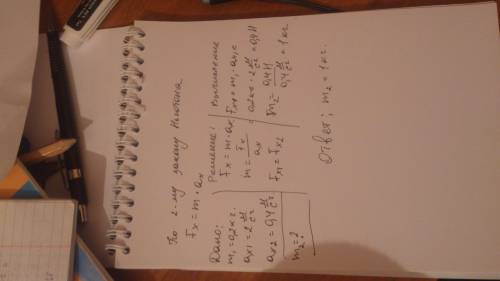 По 2-му закону Ньютона
Fx = m · ax
Дано:
m1 = 0,2 кг.
ax1 = 2 м/с²
ax2 = 0,4 м/с²
m2 = ?
Решение:
Fx = m · ax
m = Fx/ax
Fx1 = Fx2
Вычисление
Fx1 = m1 · ax1 =
= 0,2 кг · 2 м/с² = 0,4 Н
m2 = 0,4 Н / 0,4 м/с² = 1 кг.
Ответ; m2 = 1 кг.